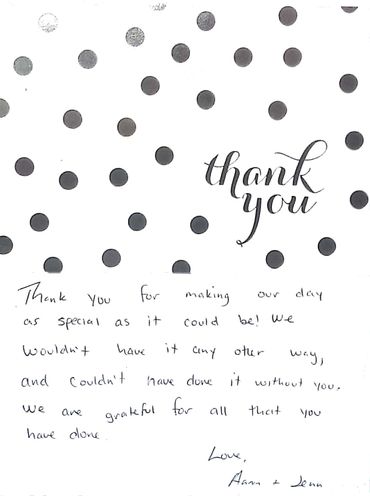 thank
you
Thank you for making our day
as special as it could be! We
wouldn't have it any other way,
and couldn't have done it without you.
We are grateful for all that you
have done.
Love,
Aaron + Jenn